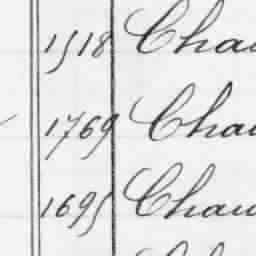 1518 Chau
1769 Chau
1695 Chau